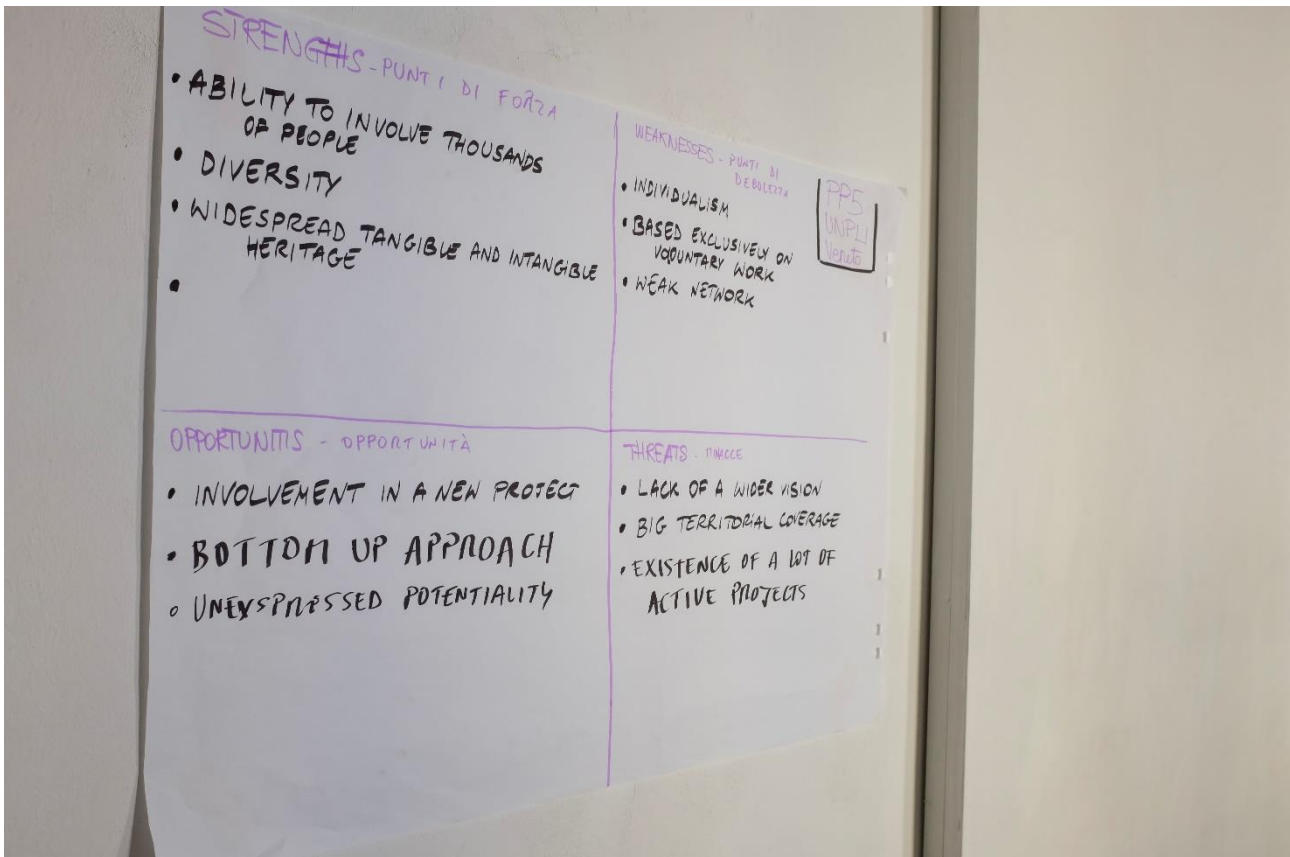 STRENGTHS - PUNTI DI FORZA
• ABILITY TO INVOLVE THOUSANDS
OF PEOPLE
• DIVERSITY
• WIDESPREAD TANGIBLE AND INTANGIBLE
HERITAGE
•
WEAKNESSES - PUNTI DI
DEBOLEZZA
• INDIVIDUALISM
• BASED EXCLUSIVELY ON
VOLUNTARY WORK
• WEAK NETWORK
PP5
UNPLI
Veneto
OPPORTUNITIS - OPPORTUNITÀ
• INVOLVEMENT IN A NEW PROJECT
• BOTTOM UP APPROACH
• UNEXSPRESSED POTENTIALITY
THREATS - MINACCE
• LACK OF A WIDER VISION
• BIG TERRITORIAL COVERAGE
• EXISTENCE OF A LOT OF
ACTIVE PROJECTS